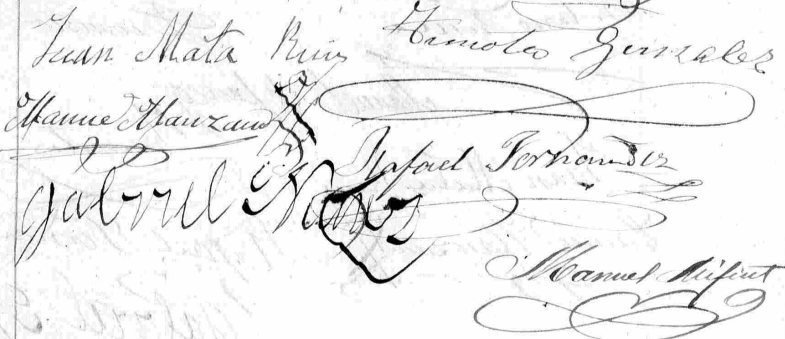 Juan Mata Ruiz
Timoteo Gonzalez
Manuel Manzano
Rafael Fernandez
Gabriel
Manuel